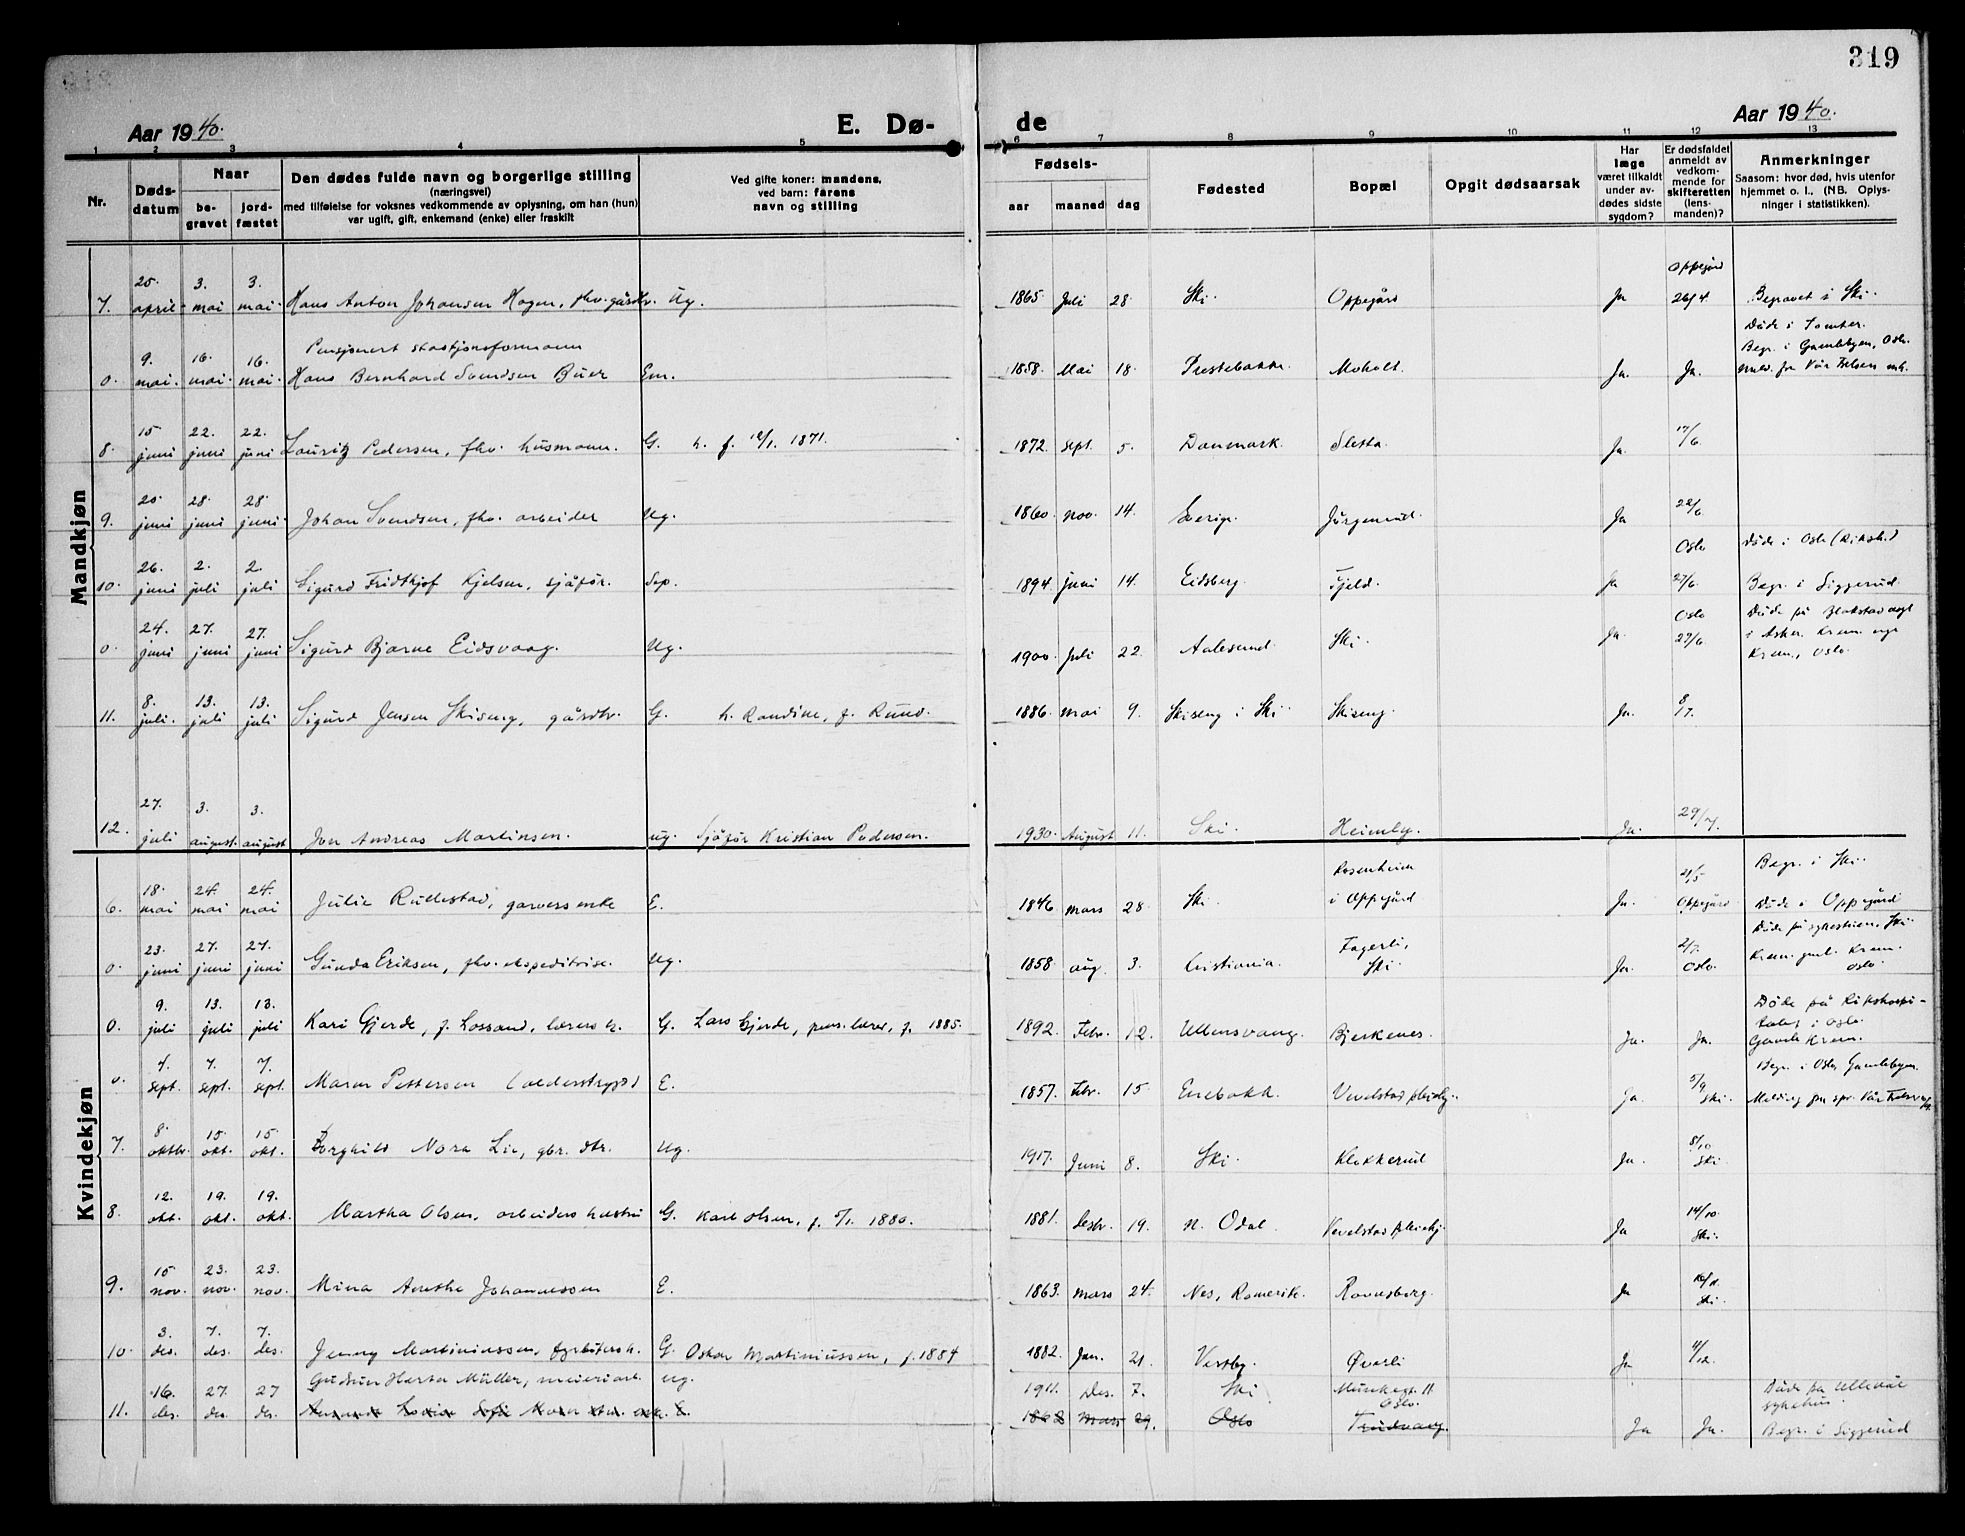 319
Aar 1940.
E. Dø-
de
Aar 1940.
1 2 3 4 5 6 7 8 9 10 11 12 13
Nr.
Døds-
datum
Naar
be-
gravet
jord-
fæstet
Den dødes fulde navn og borgerlige stilling
(næringsvei)
med tilføielse for voksnes vedkommende av oplysning, om han (hun)
var ugift, gift, enkemand (enke) eller fraskilt
Ved gifte koner: mandens,
ved barn: farens
navn og stilling
Fødsels-
aar maaned dag
Fødested
Bopæl
Opgit dødsaarsak
Har
læge
været tilkaldt
under av-
dødes sidste
sygdom?
Er dødsfaldet
anmeldt av
vedkom-
mende for
skifteretten
(lens-
manden)?
Anmerkninger
Saasom: hvor død, hvis utenfor
hjemmet o. l., (NB. Oplys-
ninger i statistikken).
Mandkjøn
7. 25. april 3. mai 3. mai Hans Anton Johansen Hagen, fhv. gårdbr. Ug. 1865 Juli 28. Ski. Oppegård Ja Oppegård 26/4 Begravet i Ski.
0. 9. mai. 16. mai. 16. mai. Pensjonert stasjonsformann
Hans Bernhard Svendsen Buer Em. 1858. Mai 18. Prestebakke. Moholt. Ja. Ja. Døde i Tomter.
Begr. i Gamlebyen, Oslo.
8. 15. juni 22. juni 22. juni Lauritz Pedersen, fhv. husmann. G. h. f. 12/1. 1871. 1872. sept. 5. Danmark. Sletta. Ja. 17/6.
9. 20. juni 28. juni 28. juni. Johan Svendsen, fhv. arbeider Ug. 1860. nov. 14. Sverige. Jørgenrud. Ja 22/6.
10. 26. juni 2. juli 2. juli Sigurd Fridtjof Kjelsen, sjåfør. Sep. 1894. juni 14. Eidsberg. Fjeld. Ja Oslo 27/6. Døde i Oslo (Riksh.)
Begr. i Siggerud.
0. 24. juni 27. juni 27. juni Sigurd Bjarne Eidsvaag. Ug. 1900. Juli 22. Aalesund. Ski. Ja. Oslo 27/6. Døde på Blakstad asyl
i Asker. Krem. nye
Krem., Oslo.
11. 8. juli. 13. juli 13. juli Sigurd Jensen Skiseng, gårdbr. G. h. Randine, f. Ruud. 1886. mai 9. Skiseng i Ski Skiseng. Ja. 8/7.
12. 27. juli 3. august. 3. august Jon Andreas Martinsen. ug. Sjåfør Kristian Pedersen. 1930. August 11. Ski. Heimly. Ja. 29/7.
Kvindekjøn
6. 18. mai 24. mai 24. mai Julie Rullestad, garvers enke E. 1846. mars 28. Ski. Rosenheim
i Oppegård Ja. 21/5 Oppegård Begr. i Ski.
Døde i Oppegård
0. 23. juni 27. juni 27. juni Gunda Eriksen, fhv. ekspeditrise. Ug. 1858. aug. 3. Cristiania. Fagerli,
Ski. Ja. 2/7. Oslo. Døde på sykestuen, Ski
Krem. gml. Krem.
Oslo.
0. 9. juli 13. juli 13. juli Kari Gjerde, f. Lossand, lærers h. G. Lars Gjerde, pens. lærer, f. 1885. 1892. Febr. 12. Ullensvang. Bjerkenes. Ja. Ja. Døde på Rikshospi-
talet i Oslo.
Gamle Krem.
0. 4. sept. 7. sept. 7. sept. Maren Pettersen (alderstrygd) E. 1857. Febr. 15 Enebakk. Vevelstad pleiehj. Ja. 5/9 Ski. Begr. i Oslo, Gamlebyen.
7. 8. oktbr. 15. okt. 15. okt. Borghild Nora Lie, gbr. dtr. Ug. 1917. Juni 8. Ski. Klokkerud Ja. 8/10 Ski
8. 12. okt. 19. okt. 19. okt. Martha Olsen, arbeiders hustru G. Karl Olsen, f. 5/1. 1880. 1881. desbr. 19. N. Odal. Vevelstad pleiehj. Ja 14/10. Ski.
9. 15 nov. 23. nov. 23. nov. Mina Anethe Johannessen E. 1863. mars 24. Nes, Romerik. Ravnsberg. Ja Ski.
10. 3. des. 7. des. 7. des. Jenny Martiniussen, fyrbøters h. G. Oskar Martiniussen, f. 1884 1882. Jan. 21. Vestby. Øverli Ja 4/12.
11. 16. des. 27. des. 27 des. Gudrun Herta Müller, meieriarb. ug. 1911. Des. 7. Ski Munkegt. 11
Oslo. Døde på Ullevål
sykehus.
E. 1862 Mars 29. Oslo Trudvang. Ja Ja. Begr. i Siggerud